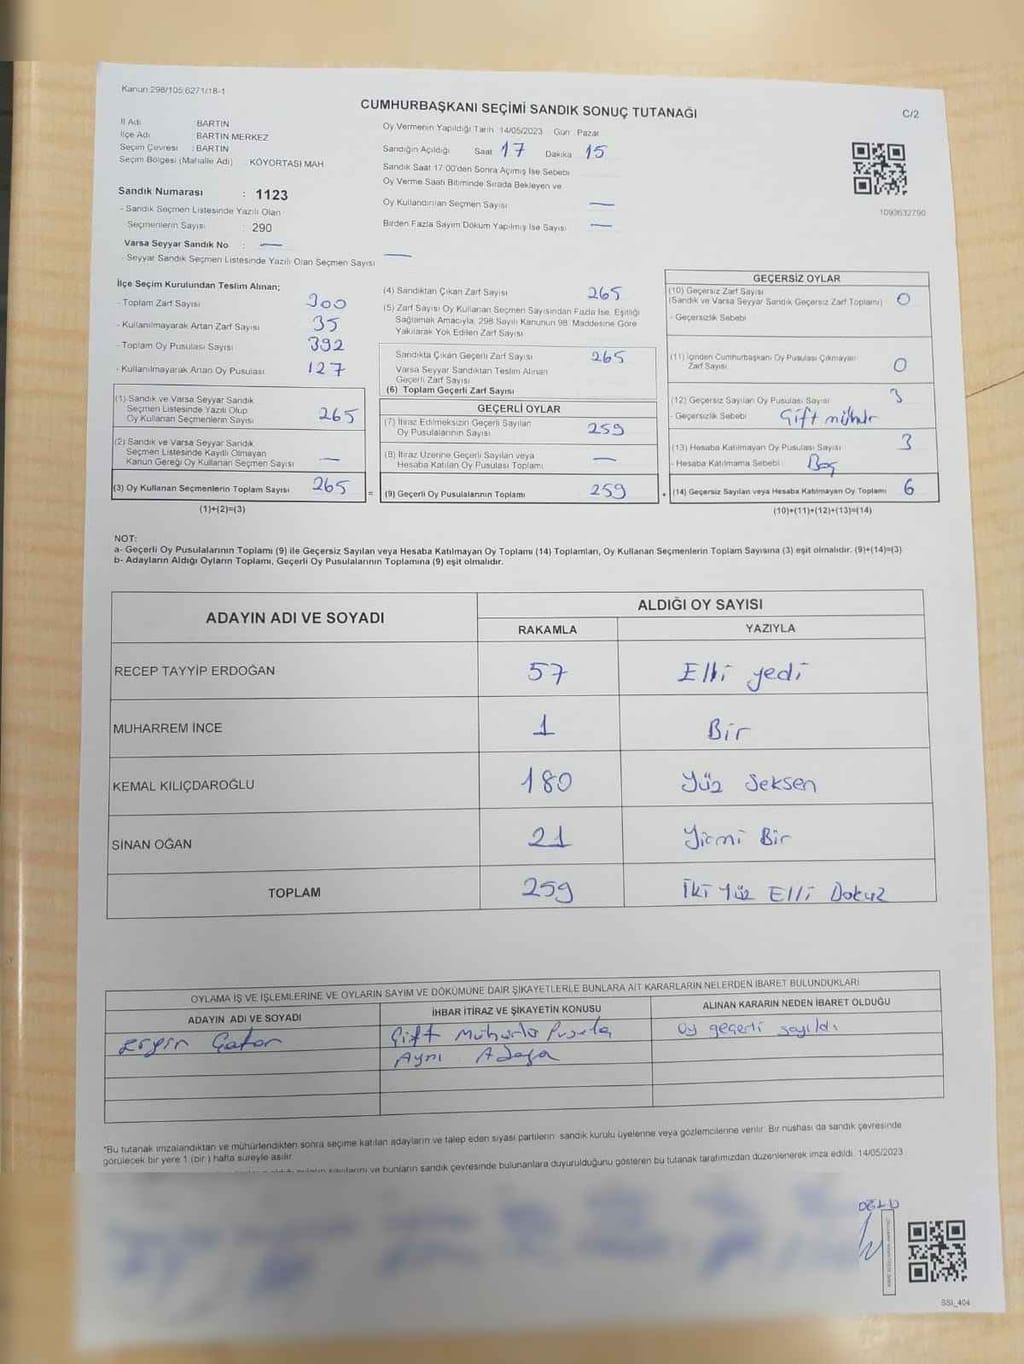 Kanun 298/105,6271/18-1
CUMHURBAŞKANI SEÇİMİ SANDIK SONUÇ TUTANAĞI
C/2
İl Adı BARTIN
İlçe Adı BARTIN MERKEZ
Seçim Çevresi : BARTIN
Seçim Bölgesi (Mahalle Adı) : KÖYORTASI MAH
Sandık Numarası : 1123
- Sandık Seçmen Listesinde Yazılı Olan
Seçmenlerin Sayısı : 290
Varsa Seyyar Sandık No : —
- Seyyar Sandık Seçmen Listesinde Yazılı Olan Seçmen Sayısı —
Oy Vermenin Yapıldığı Tarih 14/05/2023 Gün Pazar
Sandığın Açıldığı Saat 17 Dakika 15
Sandık Saat 17:00'den Sonra Açılmış İse Sebebi
Oy Verme Saati Bitiminde Sırada Bekleyen ve
Oy Kullandırılan Seçmen Sayısı —
Birden Fazla Sayım Döküm Yapılmış İse Sayısı —
1093632790
İlçe Seçim Kurulundan Teslim Alınan;
- Toplam Zarf Sayısı 300
- Kullanılmayarak Artan Zarf Sayısı 35
- Toplam Oy Pusulası Sayısı 392
- Kullanılmayarak Artan Oy Pusulası 127
(1) Sandık ve Varsa Seyyar Sandık
Seçmen Listesinde Yazılı Olup
Oy Kullanan Seçmenlerin Sayısı 265
(2) Sandık ve Varsa Seyyar Sandık
Seçmen Listesinde Kayıtlı Olmayan
Kanun Gereği Oy Kullanan Seçmen Sayısı —
(3) Oy Kullanan Seçmenlerin Toplam Sayısı 265
(1)+(2)=(3)
(4) Sandıktan Çıkan Zarf Sayısı 265
(5) Zarf Sayısı Oy Kullanan Seçmen Sayısından Fazla İse, Eşitliği
Sağlamak Amacıyla, 298 Sayılı Kanunun 98. Maddesine Göre
Yakılarak Yok Edilen Zarf Sayısı
Sandıkta Çıkan Geçerli Zarf Sayısı 265
Varsa Seyyar Sandıktan Teslim Alınan
Geçerli Zarf Sayısı
(6) Toplam Geçerli Zarf Sayısı
GEÇERLİ OYLAR
(7) İtiraz Edilmeksizin Geçerli Sayılan
Oy Pusulalarının Sayısı 259
(8) İtiraz Üzerine Geçerli Sayılan veya
Hesaba Katılan Oy Pusulası Toplamı —
= (9) Geçerli Oy Pusulalarının Toplamı 259
GEÇERSİZ OYLAR
(10) Geçersiz Zarf Sayısı
(Sandık ve Varsa Seyyar Sandık Geçersiz Zarf Toplamı) 0
- Geçersizlik Sebebi
(11) İçinden Cumhurbaşkanı Oy Pusulası Çıkmayan
Zarf Sayısı 0
(12) Geçersiz Sayılan Oy Pusulası Sayısı 3
- Geçersizlik Sebebi Çift mühür
(13) Hesaba Katılmayan Oy Pusulası Sayısı 3
- Hesaba Katılmama Sebebi Boş
+ (14) Geçersiz Sayılan veya Hesaba Katılmayan Oy Toplamı 6
(10)+(11)+(12)+(13)=(14)
NOT:
a- Geçerli Oy Pusulalarının Toplamı (9) ile Geçersiz Sayılan veya Hesaba Katılmayan Oy Toplamı (14) Toplamları, Oy Kullanan Seçmenlerin Toplam Sayısına (3) eşit olmalıdır. (9)+(14)=(3)
b- Adayların Aldığı Oyların Toplamı, Geçerli Oy Pusulalarının Toplamına (9) eşit olmalıdır.
ADAYIN ADI VE SOYADI ALDIĞI OY SAYISI
RAKAMLA YAZIYLA
RECEP TAYYİP ERDOĞAN 57 Elli yedi
MUHARREM İNCE 1 Bir
KEMAL KILIÇDAROĞLU 180 Yüz Seksen
SİNAN OĞAN 21 Yirmi Bir
TOPLAM 259 İki Yüz Elli Dokuz
OYLAMA İŞ VE İŞLEMLERİNE VE OYLARIN SAYIM VE DÖKÜMÜNE DAİR ŞİKAYETLERLE BUNLARA AİT KARARLARIN NELERDEN İBARET BULUNDUKLARI
ADAYIN ADI VE SOYADI İHBAR İTİRAZ VE ŞİKAYETİN KONUSU ALINAN KARARIN NEDEN İBARET OLDUĞU
Ergin Çift Mühürlü Pusula Oy geçerli sayıldı
Aynı Adaya
*Bu tutanak imzalandıktan ve mühürlendikten sonra seçime katılan adayların ve talep eden siyasi partilerin sandık kurulu üyelerine veya gözlemcilerine verilir. Bir nüshası da sandık çevresinde
görülecek bir yere 1 (bir) hafta süreyle asılır.
ve bunların sandık çevresinde bulunanlara duyurulduğunu gösteren bu tutanak tarafımızdan düzenlenerek imza edildi. 14/05/2023
SSI_404